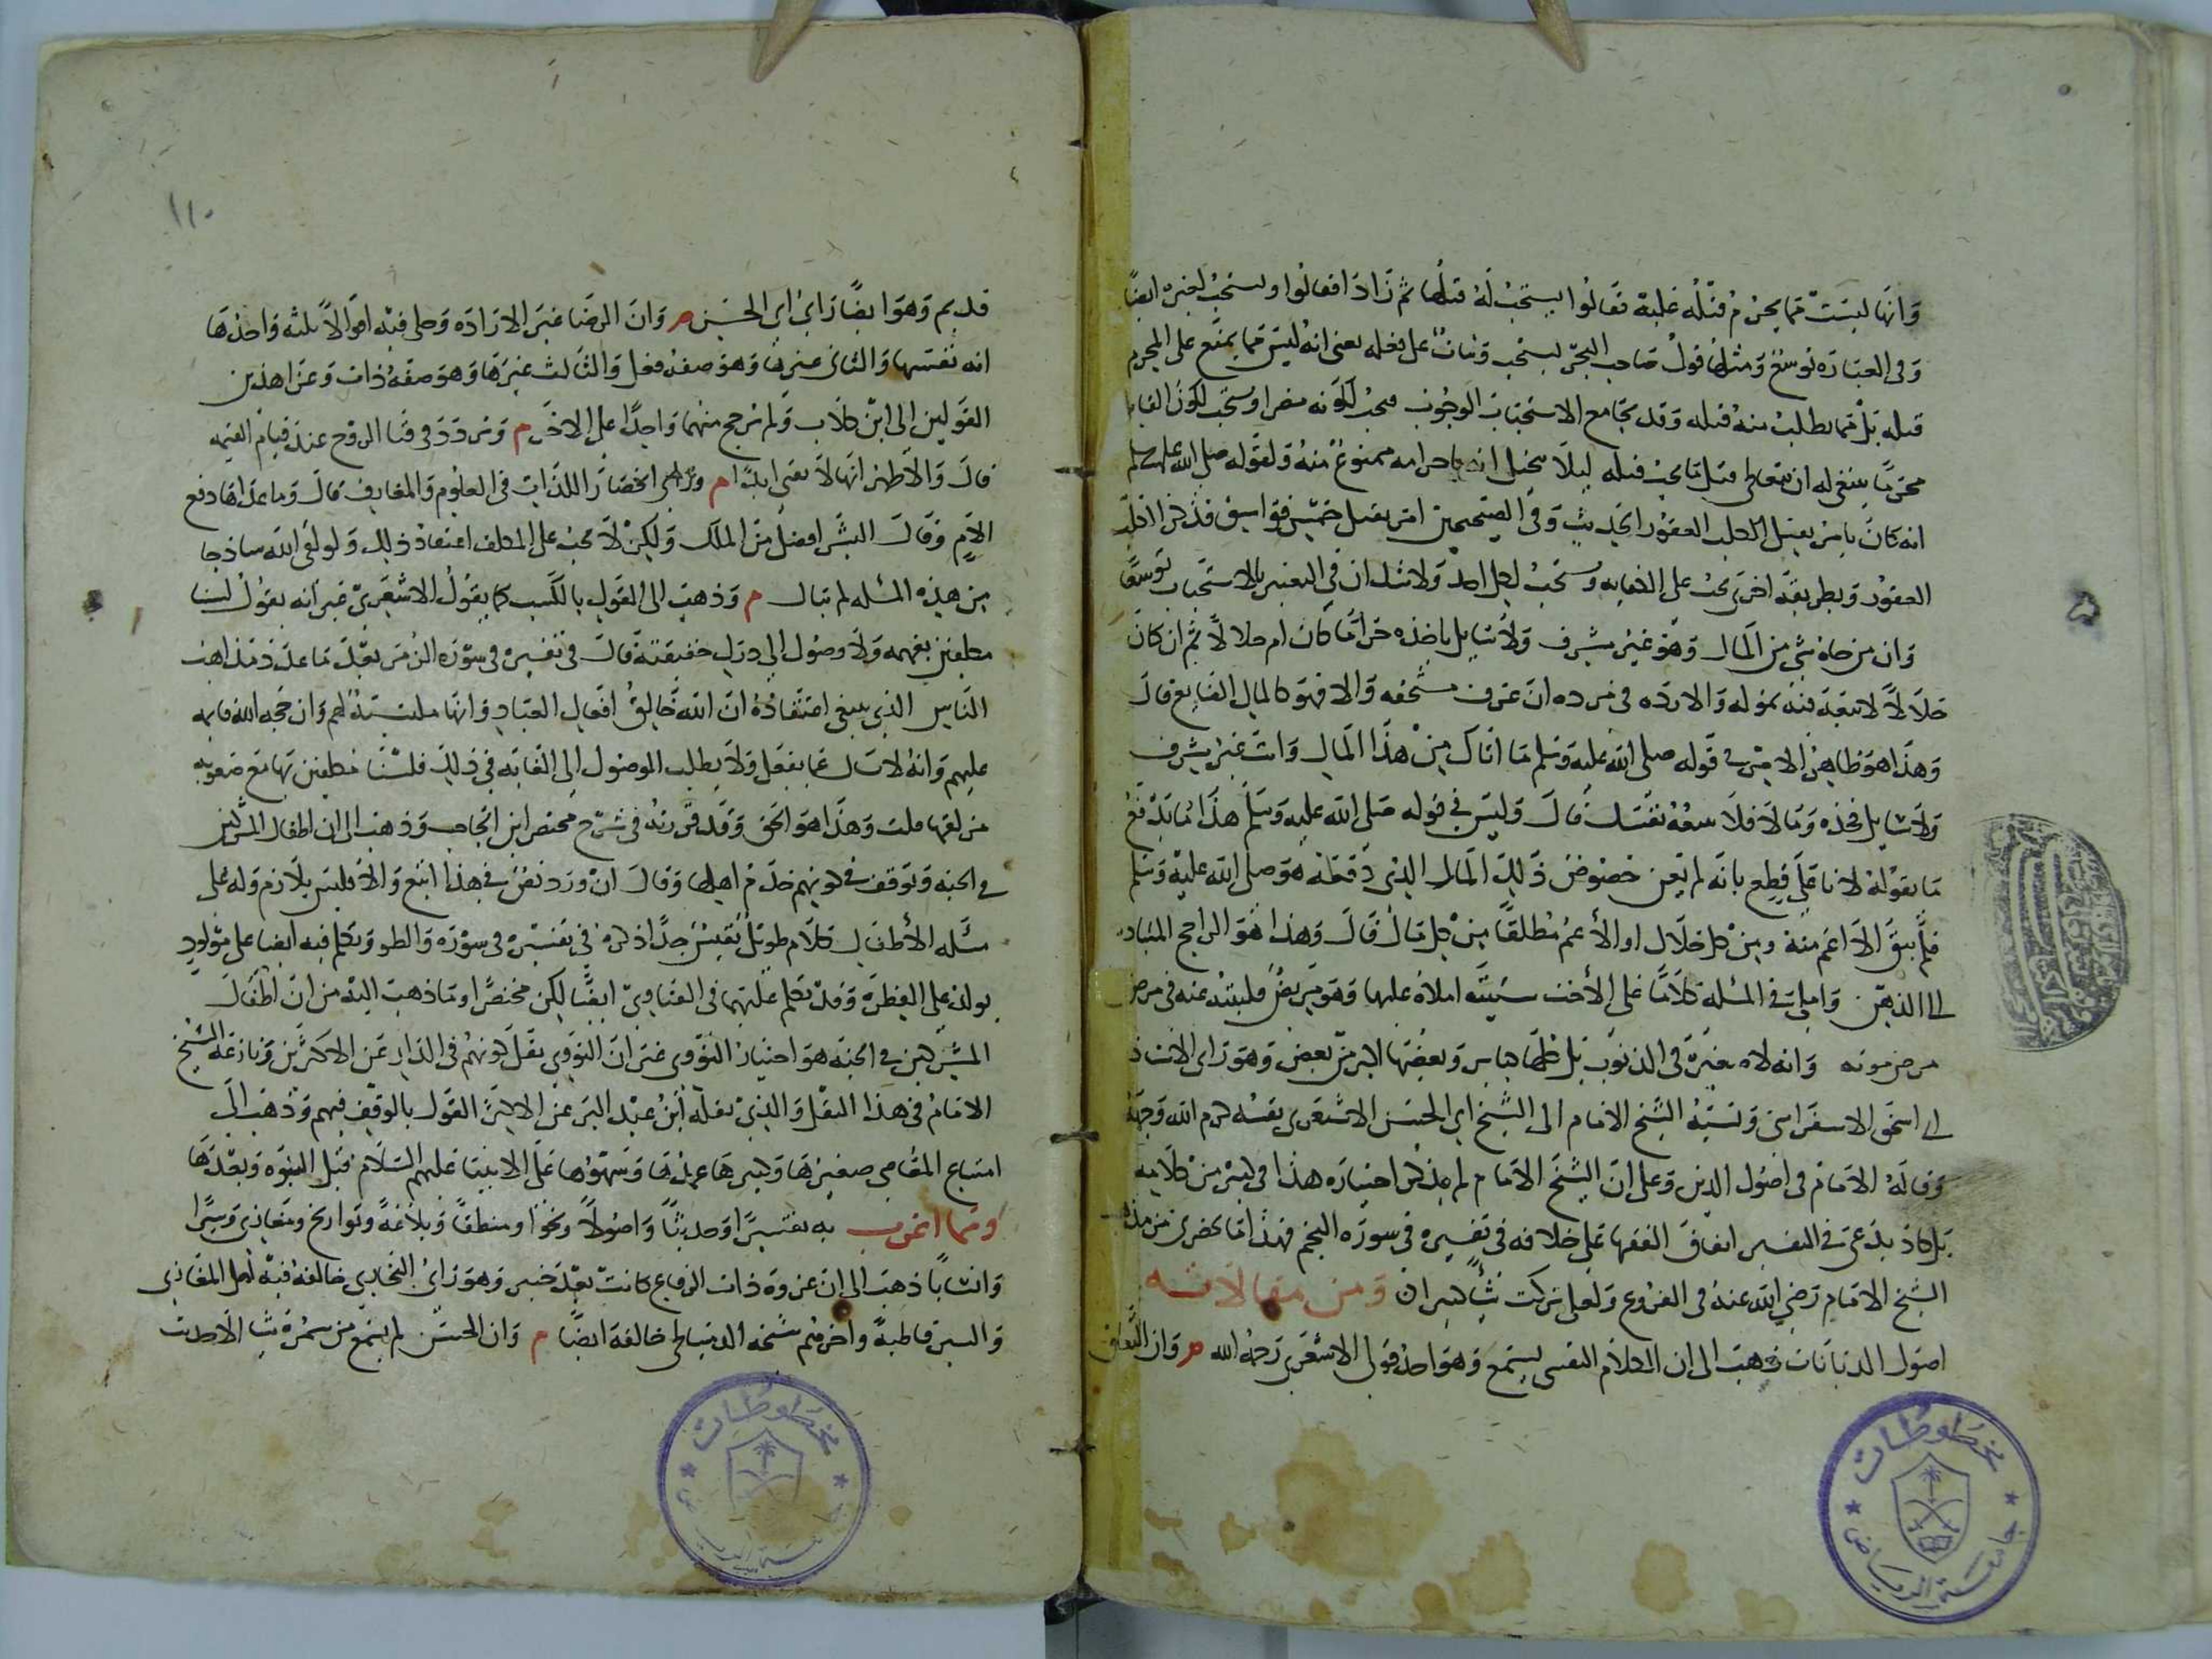 وانها ليست مما يحرم قتله عليه فقالوا يستحب له قتلها ثم زادا فقالوا ويستحب لغيره ايضا
وفى العبارة توسع ومثلها قول صاحب البحر يستحب ويثاب على فعله يعنى انه ليس مما يمتنع على المحرم
قتله بل مما يطلب منه قتله وقد يجامع الاستحباب الوجوب فيجب لكونه مضرا ويستحب لكون
محرما ينبغى له ان يتعاطى قتل ما يجب قتله ليلا يتخيل انه باحرامه ممنوع منه ولقوله صلى الله عليه وسلم
انه كان يامر بقتل الكلب العقور الحديث وفى الصحيحين امر بقتل خمس فواسق فذكر الكلب
العقور وبطريقة اخرى يجب على الكفايه ويستحب لكل احد ولا شك ان فى التعبير بالاستحباب توسعا
وان من جاه شى من المال وهو غير مشرف ولا سايل ياخذه حراما كان ام حلالا ثم ان كان
حلالا لا تبعة فيه تموله والا رده فى مرده ان عرف مستحقه والا فهو كالمال الضايع قال
وهذا هو ظاهر الامر فى قوله صلى الله عليه وسلم ما اتاك من هذا المال وانت غير مشرف
ولا سايل فخذه وما لا فلا تتبعه نفسك قال وليس فى قوله صلى الله عليه وسلم هذا ما يدفع
ما نقوله لانا على قطع بانه لم يعن خصوص ذلك المال الذى دفعه هو صلى الله عليه وسلم
فلم يبق الا اعم منه ومن كل حلال او الأعم مطلقا من كل مال قال وهذا هو الراجح المتبادر
الى الذهن واملى فى المسله كلاما على الأخت ستيته املاه عليها وهو مريض فكتبته عنه فى مرض
مرض موته وانه لا صغيرة فى الذنوب بل كلها كباير وبعضها اكبر من بعض وهو راى الاستاذ
ابى اسحق الاسفراينى ونسبه الشيخ الامام الى الشيخ ابى الحسن الاشعرى نفسه كرم الله وجهه
وقاله الامام فى اصول الدين وعلى ان الشيخ الامام لم يذكر اختياره هذا فى كثير من كلامه
بل كاد يدعى فى التفسير اتفاق الفقها على خلافه فى تفسيره فى سورة النجم فهذا ما يحضرنى من
الشيخ الامام رضي الله عنه فى الفروع ولعلى تركت شيا كبيرا ومن مقالاته
اصول الديانات ذهب الى ان الكلام النفسى يستمع وهو احد قولى الاشعرى رحمه الله م وان
١١٠
قديم وهو ايضا راى ابى الحسن م وان الرضا غير الارادة وحكى فيه اقوالا ثلثه واحدها
انه نفسها والثانى غيرها وهو صفة فعل والثالث غيرها وهو صفة ذات وعزا هذين
القولين الى ابن كلاب ولم يرجح منهما واحدا على الاخر م وتردد فى فنا الروح عند قيام القيمه
قال والأظهر انها لا تفنى ابدا م انحصار اللذات فى العلوم والمعارف قال وما عداها دفع
الام وقال البشر افضل من الملك ولكن لا يجب على المكلف اعتقاد ذلك ولو لقى الله ساذجا
من هذه المسله لم يبال م وذهب الى القول بالكسب كما يقول الاشعرى غير انه يقول لسنا
مكلفين بفهمه ولا وصول الى درك حقيقته قال فى تفسيره فى سورة الزمر بعد ما عدد مذاهب
الناس الذي ينبغى اعتقاده ان الله خالق افعال العباد وانها مكتسبة لهم وان حجة الله قايمه
عليهم وانه لا يسال عما يفعل ولا يطلب الوصول الى الغايه فى ذلك فلسنا مكلفين بها مع صعوبه
مرلقها قلت وهذا هو الحق وقد قررته فى شرح مختصر ابن الحاجب وذهب الى ان اطفال المشركين
فى الجنه وتوقف فى كونهم خدم اهلها وقال ان ورد نص فى هذا اتبع والا فليس بلازم وله على
مسله الأطفال كلام طويل نفيس جدا ذكره فى تفسيره فى سورة والطور وتكلم فيه ايضا على مولود
يولد على الفطرة وقد تكلم عليهما فى الفتاوى ايضا لكن مختصرا وما ذهب اليه من ان اطفال
المشركين فى الجنه هو اختيار النووى غير ان النووى نقل كونهم فى النار عن الاكثرين ونازعه الشيخ
الامام فى هذا النقل والذى نقله ابن عبد البر عن الاكثر القول بالوقف فيهم وذهب الى
امتناع المعاصى صغيرها وكبيرها عمدها وسهوها على الانبيا عليهم السلام قبل النبوه وبعدها
ومما اغرب به تفسيرا وحديثا واصولا ونحوا ومنطقا وبلاغة وتواريخ ومغازى وسيرا
وانسابا ذهب الى ان غزوة ذات الرقاع كانت بعد خيبر وهو راى البخارى خالفه فيه اهل المغازى
والسير قاطبة واخرهم شيخه الدمياطى خالفه ايضا م وان الحسن لم يسمع من سمرة شيا الاحديث
مخطوطات
مخطوطات
جامعة الرياض